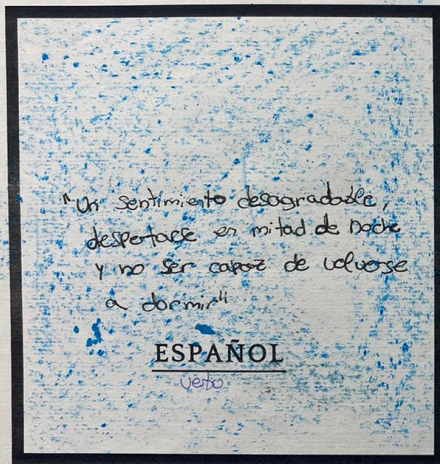 "Un sentimiento desagradable,
despertarse en mitad de noche
y no ser capaz de volverse
a dormir"
ESPAÑOL
verbo